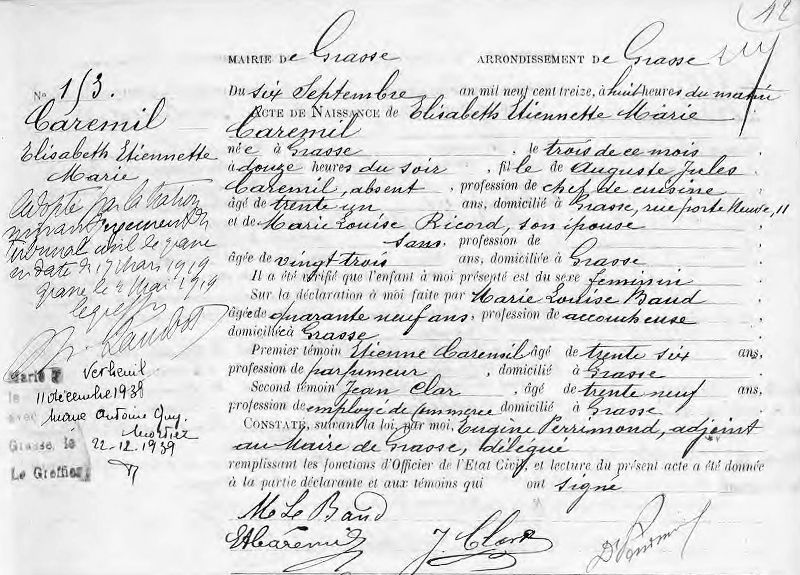 12
MAIRIE DE Grasse ARRONDISSEMENT DE Grasse
No 153.
Caremil
Elisabeth Etiennette
Marie
Adopté par la Nation
Jugement du
Tribunal civil de Grasse
en date du 17 Mars 1919
Grasse le 2 Mai 1919
le greffier
Marié à Verneuil
le 11 décembre 1939
avec Marie Antoine Guy
Grasse, le 22-12.1939
Le Greffier,
Du six Septembre an mil neuf cent treize, à huit heures du matin
ACTE DE NAISSANCE de Elisabeth Etiennette Marie
Caremil
née à Grasse , le trois de ce mois
à douze heures du soir , fille de Auguste Jules
Caremil, absent , profession de chef de cuisine
âgé de trente un ans, domicilié à Grasse, rue porte Neuve, 11
et de Marie Louise Ricord, son épouse
sans profession de
âgée de vingt trois ans, domiciliée à Grasse
Il a été vérifié que l'enfant à moi présenté est du sexe feminin
Sur la déclaration à moi faite par Marie Louise Baud
âgée de quarante neuf ans, profession de accoucheuse
domiciliée à Grasse
Premier témoin Etienne Caremil âgé de trente six ans,
profession de parfumeur , domicilié à Grasse
Second témoin Jean Clar , âgé de trente neuf ans,
profession de employé de commerce domicilié à Grasse
CONSTATÉ, suivant la loi, par moi, Eugène Perrimond, adjoint
au Maire de Grasse, délégué
remplissant les fonctions d'Officier de l'Etat Civil, et lecture du présent acte a été donnée
à la partie déclarante et aux témoins qui ont signé
M Le Baud
Et Carémil J. Clar